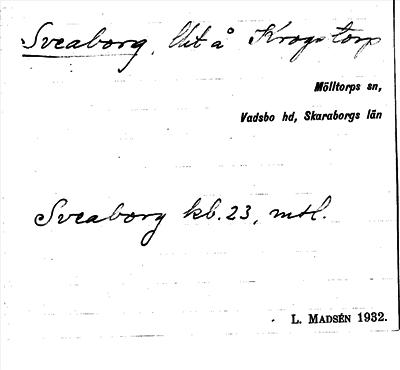 Sveaborg, lht å Krogstorp
Mölltorps sn,
Vadsbo hd, Skaraborgs län
Sveaborg kb. 23, mtl.
L. MADSÉN 1932.